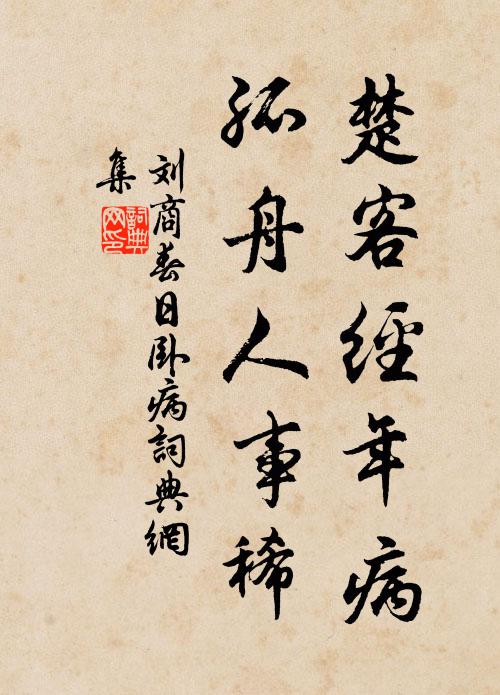 楚客經年病
孤舟人事稀
刘商春日卧病詞典網
集
詞典
网印